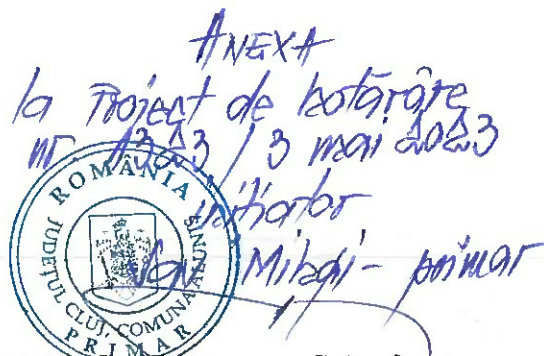 ANEXA
la Proiect de hotărâre
nr. 1323 / 3 mai 2023
inițiator
Mihai - primar
ROMÂNIA
JUDEȚUL CLUJ, COMUNA
PRIMAR